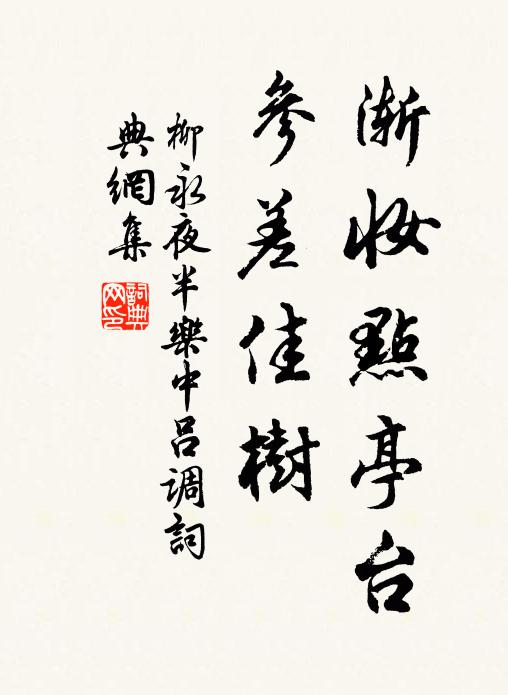 渐妆點亭台
參差佳樹
柳永夜半樂中呂调詞
典網集
詞典网印